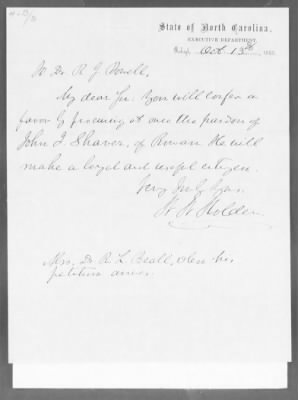 State of North Carolina,
EXECUTIVE DEPARTMENT,
Raleigh, Oct 13th, 1865.
Dr. R J Powell,
My dear Sir: You will confer a
favor by procuring at once the pardon of
John I Shaver, of Rowan. He will
make a loyal and useful citizen.
Very Truly Yours,
W W Holden
Also, Dr R L Beall, when his
petition arrives.